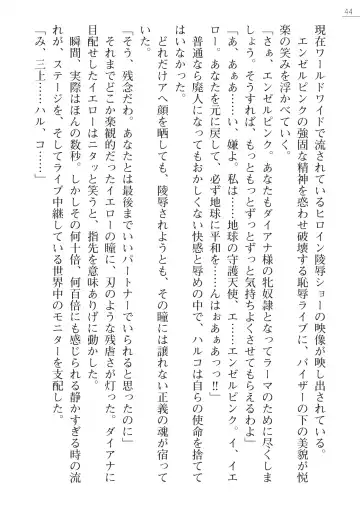 44
現在ワールドワイドで流されているヒロイン陵辱ショーの映像が映し出されている。
エンゼルピンクの強固な精神を惑わせ破壊する恥辱ライブに、バイザーの下の美貌が悦
楽の笑みを浮かべていく。
「さぁ、エンゼルピンク。あなたもダイアナ様の牝奴隷となってラーマのために尽くしま
しょう。そうすれば、もっともっとずっとずっと気持ちよくさせてもらえるわよ」
「あ、あぁぁ……い、嫌よ。私は……地球の守護天使、エ……エンゼルピンク。イ、イエ
ロー。あなたを元に戻して、必ず地球に平和を……んはぉぁあぁっっ!!」
普通なら廃人になってもおかしくない快感と辱めの中で、ハルコは自らの使命を捨てて
はいなかった。
どれだけアヘ顔を晒しても、陵辱されようとも、その瞳には譲れない正義の魂が宿って
いた。
「そう、残念だわ。あなたとは最後までいいパートナーでいられると思ったのに」
それまでどこか楽観的だったイエローの瞳に、刃のような残虐さが灯った。ダイアナに
目配せしたイエローはニタッと笑うと、指先を意味ありげに動かした。
瞬間、実際はほんの数秒。しかし何十倍、何百倍にも感じられる静かすぎる時の流
れが、ステージを、そしてライブ中継している世界中のモニターを支配した。
「み、三上……ハル、コ……」